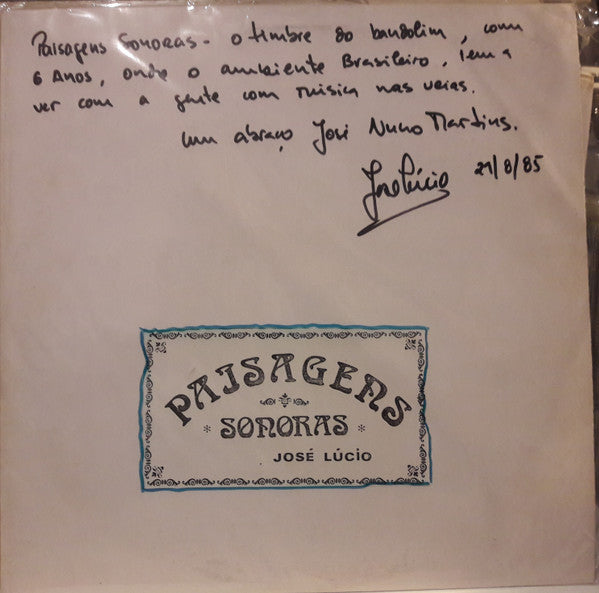 Paisagens Sonoras - o timbre do bandolim, com
6 Anos, onde o ambiente Brasileiro, tem a
ver com a gente com música nas veias.
um abraço José Nuno Martins.
José Lúcio 21/8/85
PAISAGENS
* SONORAS *
JOSÉ LÚCIO